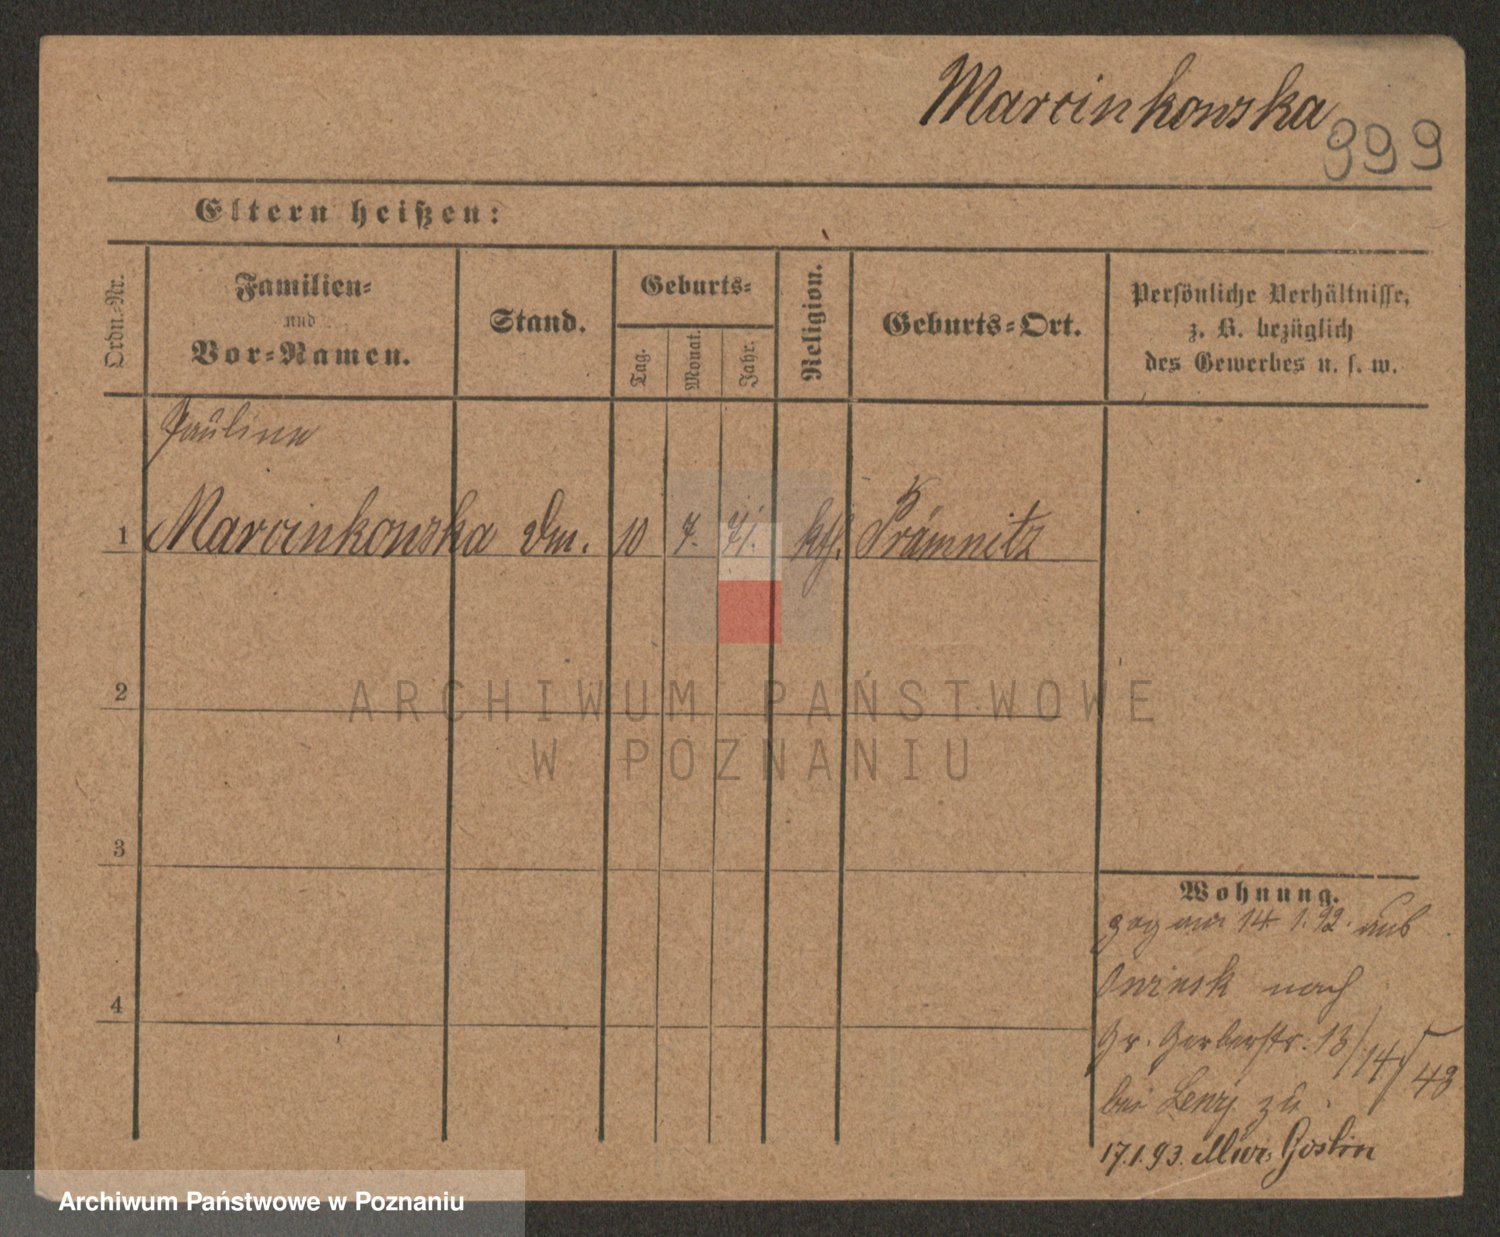 Marcinkowska
999
Eltern heißen:
Ordn.-Nr.
Familien-
und
Vor-Namen.
Stand.
Geburts-
Tag.
Monat.
Jahr.
Religion.
Geburts-Ort.
Persönliche Verhältnisse,
z. B. bezüglich
des Gewerbes u. s. w.
Pauline
1 Marcinkowska 10 7. 71. kth. Prämnitz
2
ARCHIWUM PAŃSTWOWE
W POZNANIU
3
Wohnung.
zog am 14 1. 92. aus
Owinsk nach
4
Gr. Gerberstr. 13/14 48
bei zu
17.1.93. Mur. Goslin
Archiwum Państwowe w Poznaniu